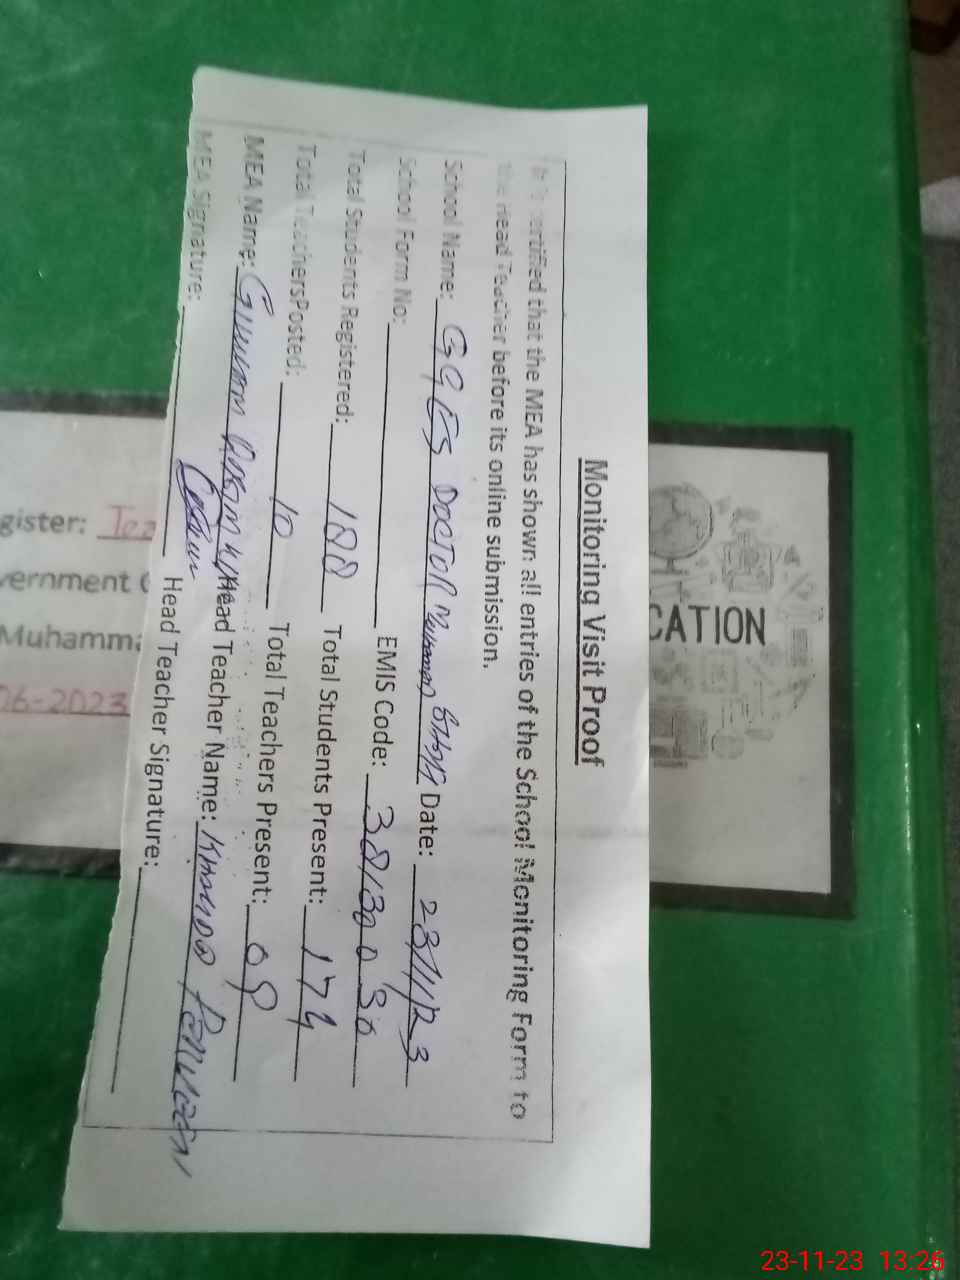 Monitoring Visit Proof
It is certified that the MEA has shown all entries of the School Monitoring Form to
the Head Teacher before its online submission.
School Name: GGES DOCTOR Date: 23/11/23
School Form No: EMIS Code: 38130030
Total Students Registered: 188 Total Students Present: 174
Total TeachersPosted: 10 Total Teachers Present: 09
MEA Name: Head Teacher Name: Perveen
MEA Signature: Head Teacher Signature:
CATION
gister: Tea
vernment
Muhamma
06-2023
23-11-23 13:26